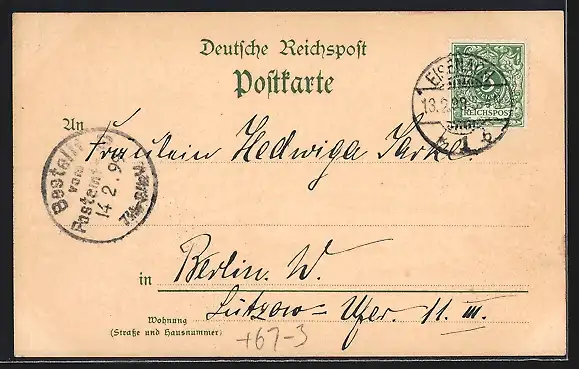 Deutsche Reichspost
Postkarte
EISENACH
13.2.99
REICHSPOST
An Fräulein Hedwiga
Bestellt
vom
Postamte
14.2.99
in Berlin. W.
Lützow-Ufer 11 III.
Wohnung
(Straße und Hausnummer)
+67-3